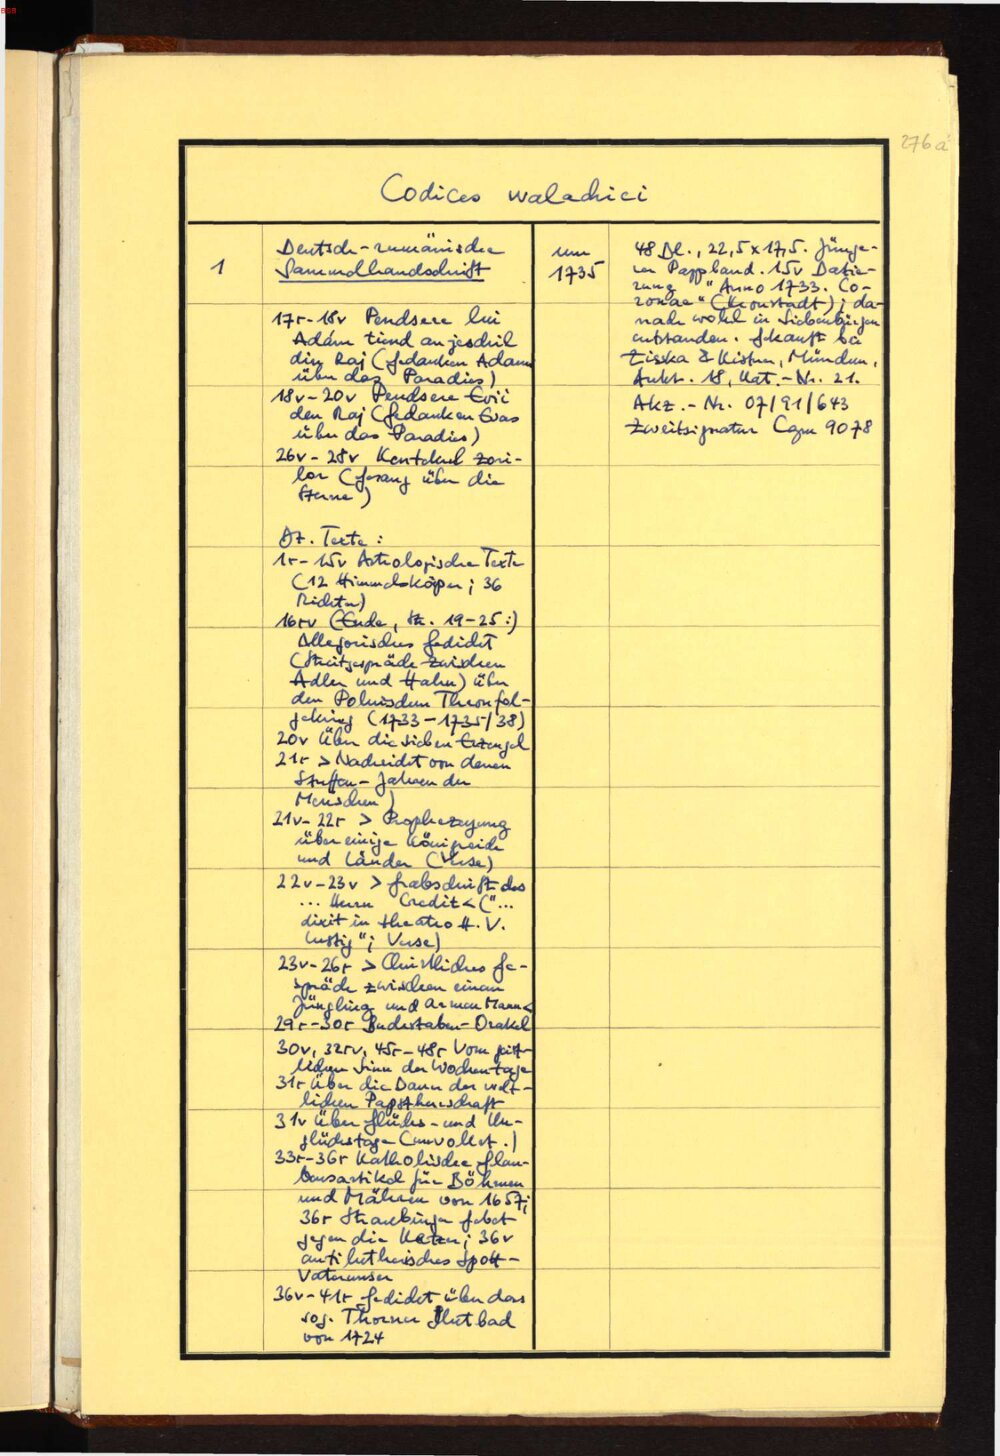 BSB
276a
Codices walachici
1
Deutsch-rumänische
Sammelhandschrift
17r-18v Pendsere lui
Adám tiend an jeschil
din Raj (Gedanken Adams
über das Paradies)
18v-20v Pendsere Evii
den Raj (Gedanken Evas
über das Paradies)
26v-28v Kentekul zori-
lor (Gesang über die
Sterne)
Dt. Texte:
1r-15v Astrologische Texte
(12 Himmelskörper; 36
Richter)
16rv (Ende, Str. 19-25:)
Allegorisches Gedicht
(Streitgespräch zwischen
Adler und Hahn) über
den Polnischen Thronfol-
gekrieg (1733-1735/38)
20v Über die sieben Erzengel
21r >Nachricht von denen
Stuffen-Jahren der
Menschen)
21v-22r >Prophezeyung
über einige Königreich
und Länder (Verse)
22v-23v >Grabschrift des
... Herrn Credit< ("...
dixit in theatro H. V.
Lustig"; Verse)
23v-26r >Christliches Ge-
spräch zwischen einem
Jüngling und armen Mann<
29r-30r Buchstaben-Orakel
30v, 32rv, 45r-48r Vom gött-
lichen Sinn der Wochentage
31r Über die Dauer der welt-
lichen Papstherrschaft
31v Über Glücks- und Un-
glückstage (unvollst.)
33r-36r Katholische Glau-
bensartikel für Böhmen
und Mähren von 1657;
36r Straubinger Gebet
gegen die Ketzer; 36v
antilutherisches Spott-
Vaterunser
36v-41r Gedicht über das
sog. Thorner Blutbad
von 1724
um
1735
48 Bl., 22,5 x 17,5. Jünge-
rer Pappband. 15v Datie-
rung "Anno 1733. Co-
ronae" (Kronstadt); da-
nach wohl in Siebenbürgen
entstanden. Gekauft bei
Zisska & Kistner, München,
Aukt. 18, Kat.-Nr. 21.
Akz.-Nr. 07/91/643
Zweitsignatur Cgm 9078